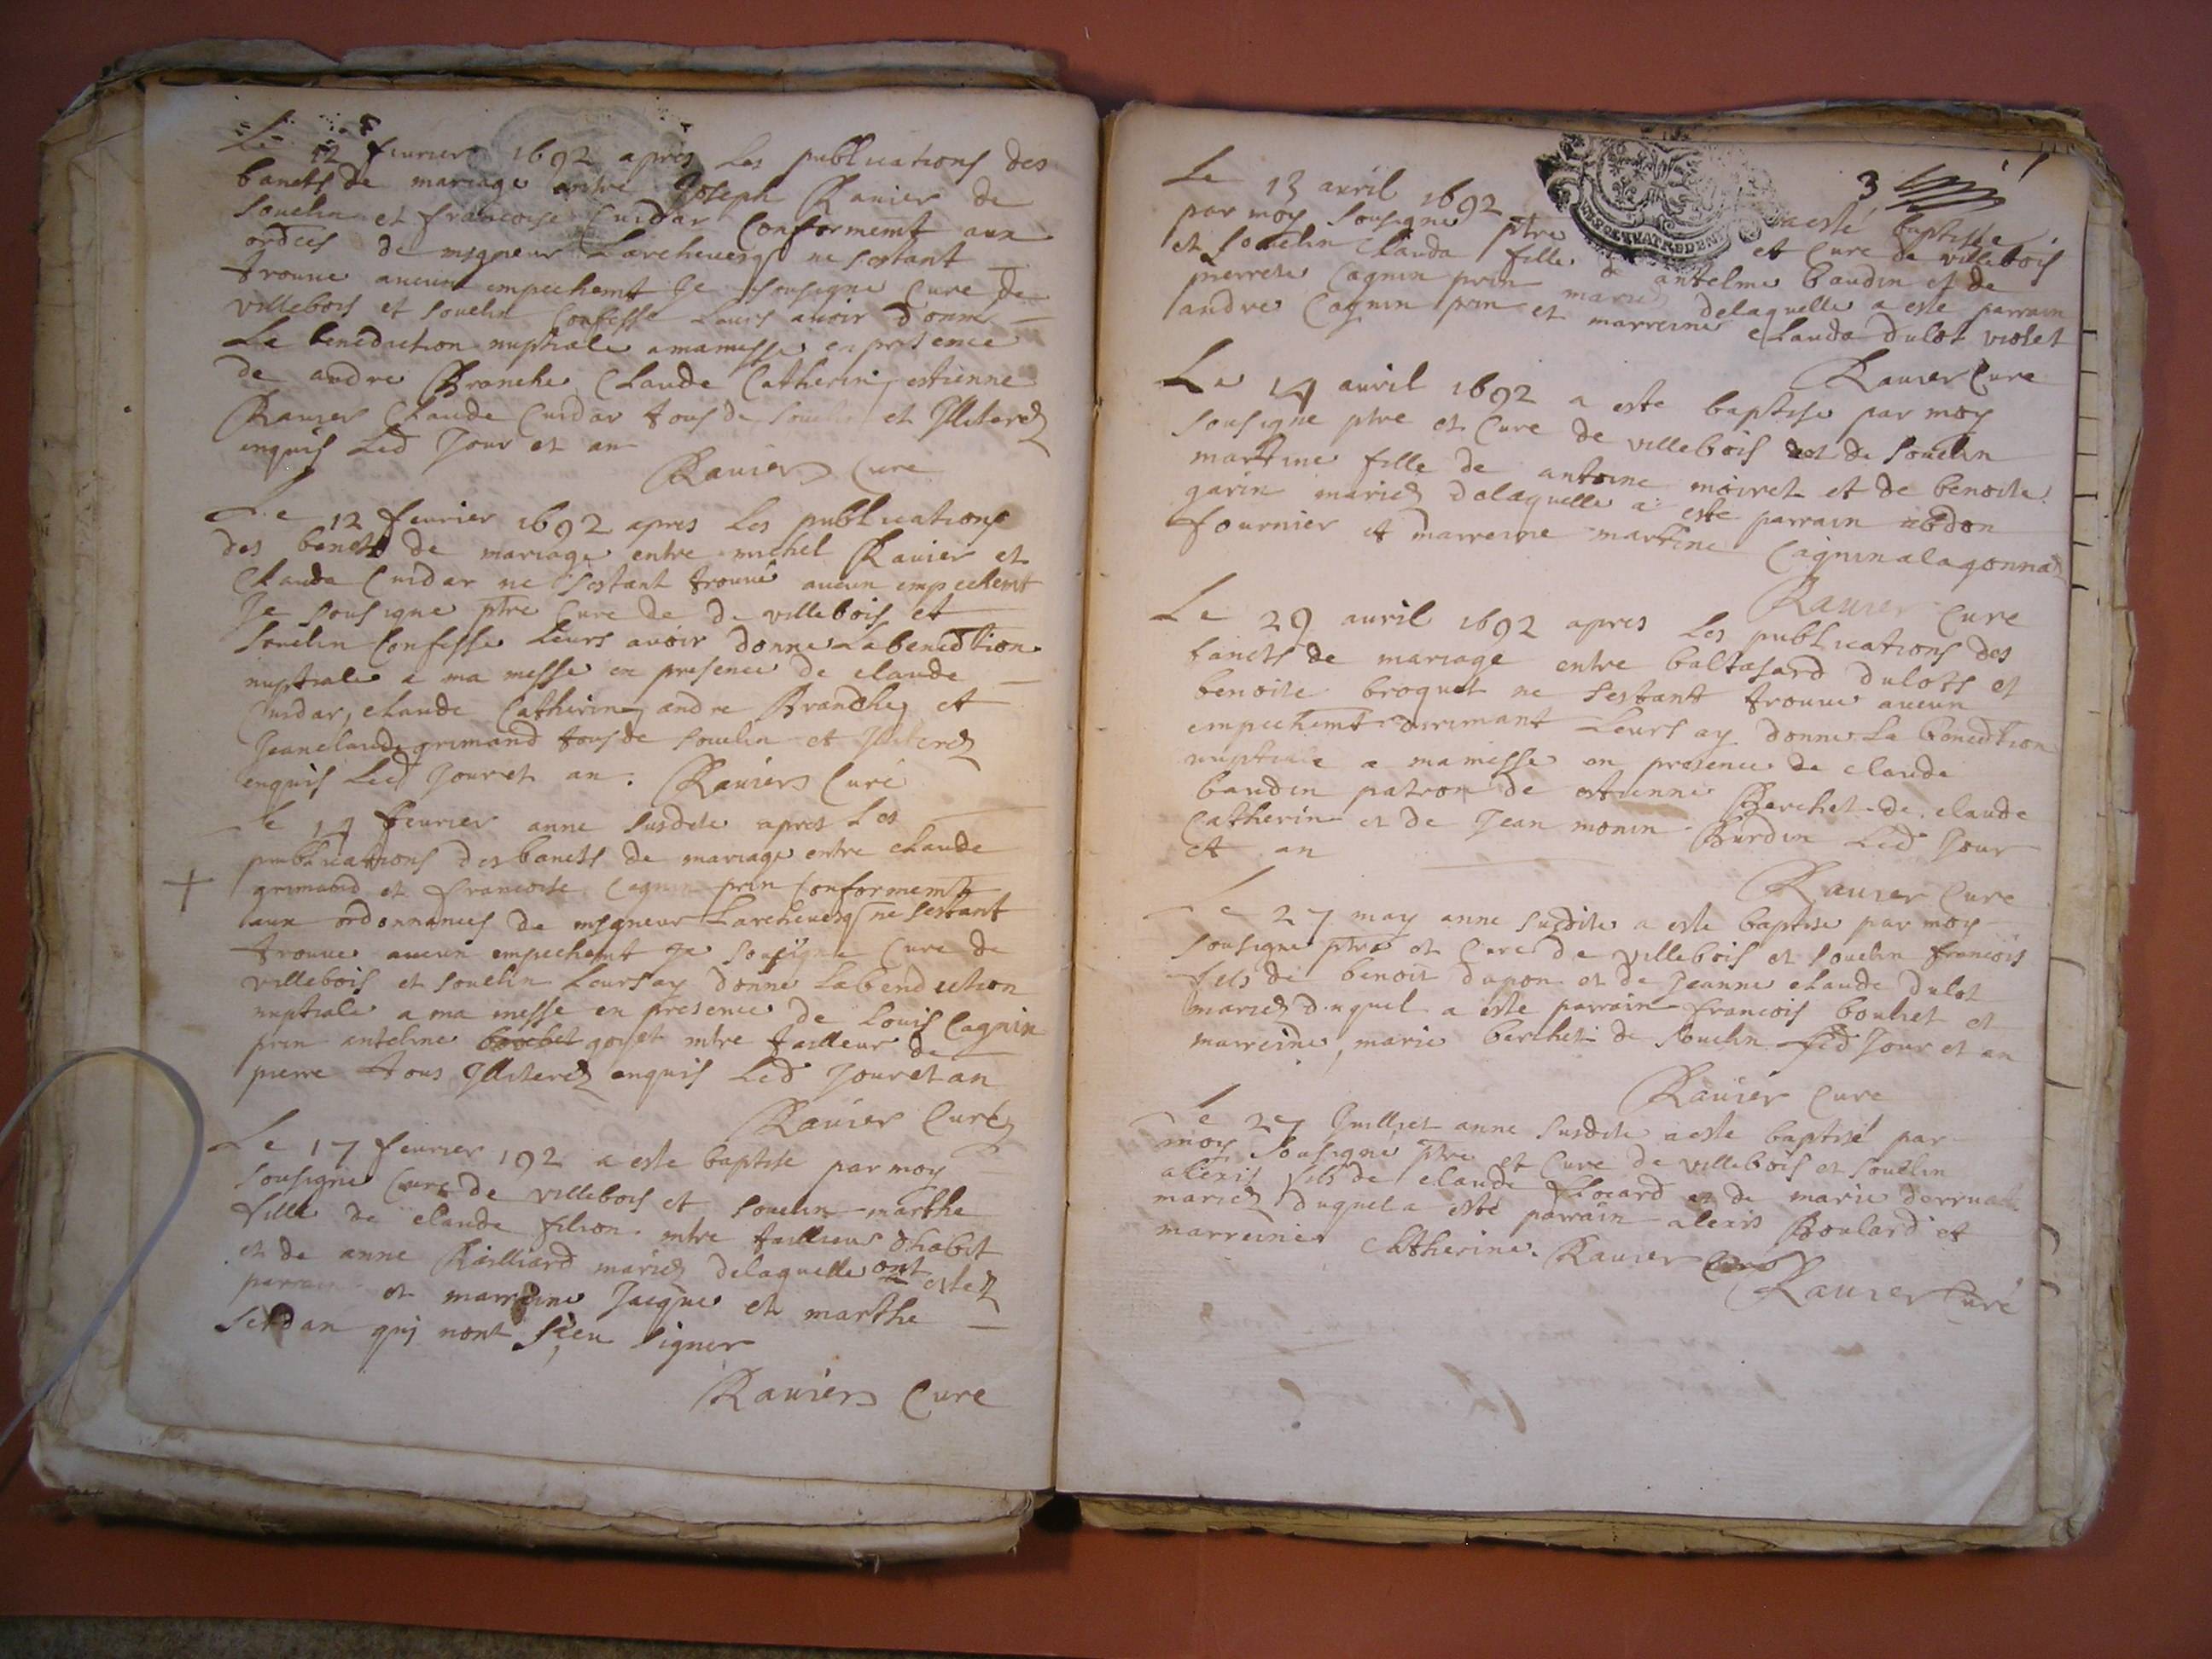 Le 12 feurier 1692 apres les publications des
bancts de mariage entre Joseph Rauier de
Souclin et francoise Cuidar Conformemt aux
ordces de msgneur Larcheuesq ne sestant
trouue aucun empechemt Je sousigne Cure de
villebois et souclin Confesse leurs auoir donne
La benediction nuptiale a ma messe en presence
de andre Branche, Claude Catherin, estienne
Rauier Claude Cuidar tous de Souclin et Illiterez
enquis led Jour et an
Rauier Cure
Le 12 feurier 1692 apres les publications
des bancts de mariage entre michel Rauier et
Clauda Cuidar ne sestant trouué aucun empechemt
Je sousigne ptre Cure de de villebois et
souclin Confesse leurs auoir donne La benedtion
nuptiale a ma messe en presence de claude
Cuidar, claude Catherin, andre Branche, et
Jeanclaude grimand tous de souclin et Illiterez
enquis led Jour et an. Rauier Curé
Le 14 feurier anne susdite apres Les
publications des bancts de mariage entre claude
grimand et francoise Cagnin prin Conformemt
aux ordonnances de msgneur Larcheuesq ne sestant
trouue aucun empechemt Je sousigne Cure de
villebois et souclin leurs ay donne La bendiction
nuptiale a ma messe en presence de Louis Cagnin
prin antelme goiset mtre tailleur de
pierre tous Illiterez enquis led Jour et an
Rauier Curé
Le 17 feurier 192 a este baptise par moy
sousigne Cure de villebois et souclin marthe
fille de claude filion mtre tailleur dhabit
et de anne Railliard mariez delaquelle ont estez
parrain et marreine Jacque et marthe
Serdan qui nont sceu signer
Rauier Cure
3
Le 13 auril 1692 a esté baptisée
par moy sousigne ptre et Cure de villebois
et souclin Clauda fille de antelme baudin et de
pierrete Cagnin prin mariez delaquelle a este parrain
andre Cagnin prin et marreine Clauda dulot violet
Rauier Cure
Le 14 auril 1692 a este baptise par moy
sousigne ptre et Cure de villebois et de souclin
martine fille de antoine moiret et de benoite
garin mariez delaquelle a este parrain abdon
fournier et marreine martine Cagnin alagonna
Rauier Cure
Le 29 auril 1692 apres les publications des
bancts de mariage entre baltasard dulott et
benoite broquet ne sestant trouue aucun
empechemt dirimant leurs ay donne la benedtion
nuptiale a ma messe en presence de claude
baudin patron de estienne Berchet de claude
Catherin et de Jean monin Burdin led Jour
et an
Rauier Cure
Le 27 may anne susdite a este baptise par moy
sousigne ptre et Cure de villebois et souclin francois
fils de benoit dupon et de Jeanne claude dulot
mariez duquel a este parrain francois bouliet et
marreine, marie berchet de souclin led Jour et an
Rauier Cure
Le 27 Juilliet anne susdite a este baptisé par
moy sousigné ptre et Cure de villebois et souclin
alexis fils de claude flocard et de marie derruat
mariez duquel a esté parrain alexis Boulard et
marreine Catherine Rauier
Rauier Curé